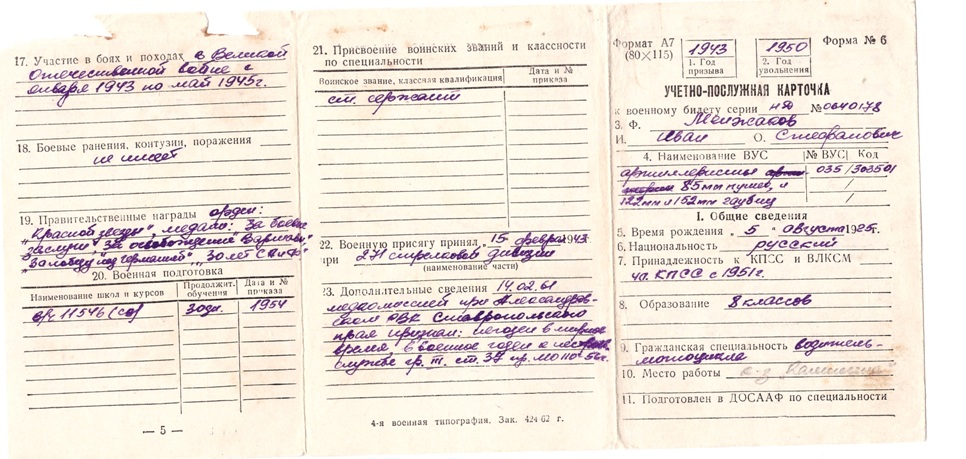 17. Участие в боях и походах в Великой
Отечественной войне с
января 1943 по май 1945 г.
18. Боевые ранения, контузии, поражения
не имеет
19. Правительственные награды орден:
"Красной звезды", медали: За боевые
заслуги", За освобождение Варшавы"
"За победу над германией"... 30 лет СА и ВМФ"
20. Военная подготовка
Наименование школ и курсов
Продолжит. обучения
Дата и № приказа
в/ч 11546 (со)
30 дн.
1954
— 5 —
21. Присвоение воинских званий и классности
по специальности
Воинское звание, классная квалификация
Дата и № приказа
ст. сержант
22. Военную присягу принял 15 февра 1943
при 271 стрелковой дивизии
(наименование части)
23. Дополнительные сведения 14.02.61
медкомиссией при Александров-
ском РВК Ставропольского
края признан: негоден в мирное
время, в военное годен к нестроев.
службе гр. III. ст. 37 пр. МО
4-я военная типография. Зак. 424-62 г.
Формат А7
(80×115)
1943
1. Год
призыва
1950
2. Год
увольнения
Форма № 6
УЧЕТНО-ПОСЛУЖНАЯ КАРТОЧКА
к военному билету серии НД №0640178
3. Ф. Межаков
И. Иван О. Стефанович
4. Наименование ВУС
№ ВУС
Код
артиллеристы
035/303501
85 мм пушек, и
122 мм и 152 мм гаубиц
I. Общие сведения
5. Время рождения „5" августа 1925 г.
6. Национальность русский
7. Принадлежность к КПСС и ВЛКСМ
чл. КПСС с 1951 г.
8. Образование 8 классов
9. Гражданская специальность водитель-
мотоцикла
10. Место работы к-з Калинина
11. Подготовлен в ДОСААФ по специальности